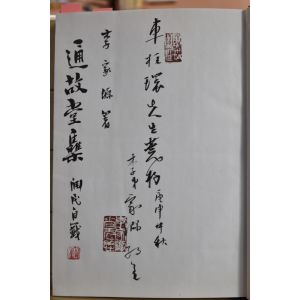 車柱環先生惠存
庚申仲秋
弟家源
李家源著
通故堂集 淵民自